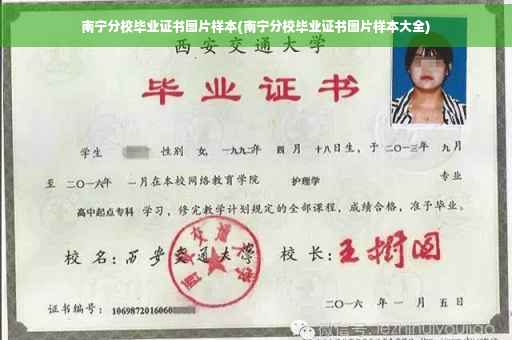 南宁分校毕业证书图片样本(南宁分校毕业证书图片样本大全)
西安交通大学
毕业证书
学生 性别 女, 一九九二年 四月 十八日生, 于二〇一三年 九月
至 二〇一六年 一月在本校网络教育学院 护理学 专业
高中起点专科 学习, 修完教学计划规定的全部课程, 成绩合格, 准予毕业。
校 名: 西安交通大学 校 长: 王树国
西安交通大学
证书编号: 1069872016060
二〇一六 年 一 月 五 日
微信号: jezhinuiyoujiao